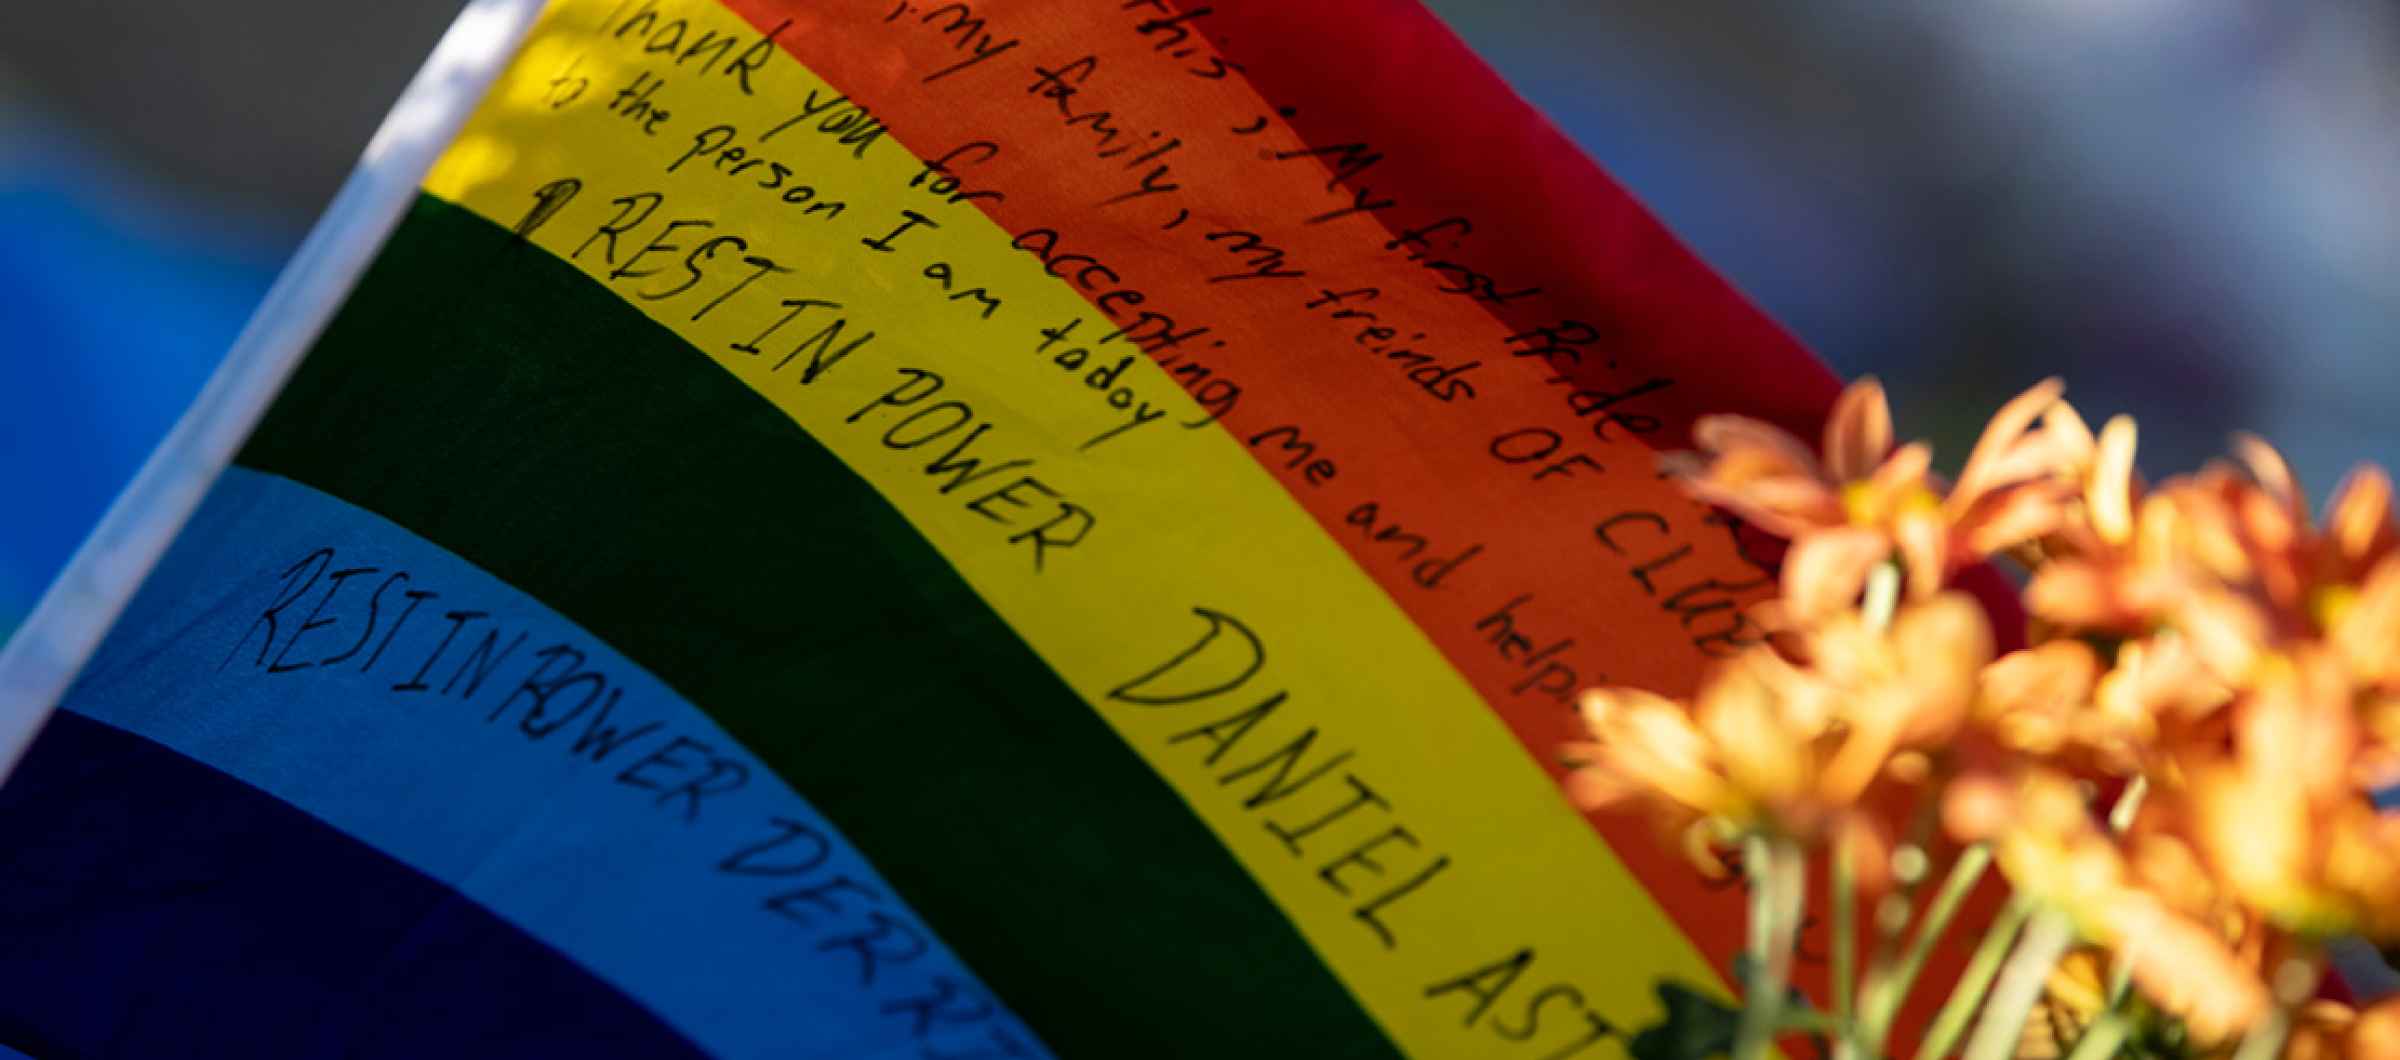 this, My first Pride
, my family, my freinds OF CLUB
Thank you for accepting me and helpi
to the person I am today
REST IN POWER DANIEL AST
REST IN POWER DERRI